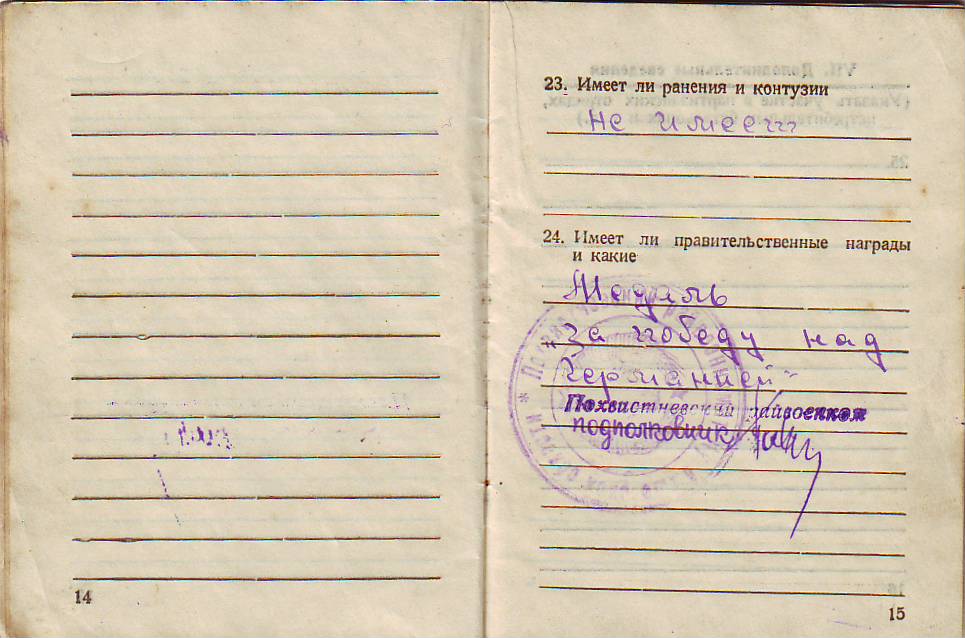 14
23. Имеет ли ранения и контузии
Не имеет
24. Имеет ли правительственные награды
и какие
Медаль
„За победу над
Германией"
Похвистневский райвоенком
подполковник
15